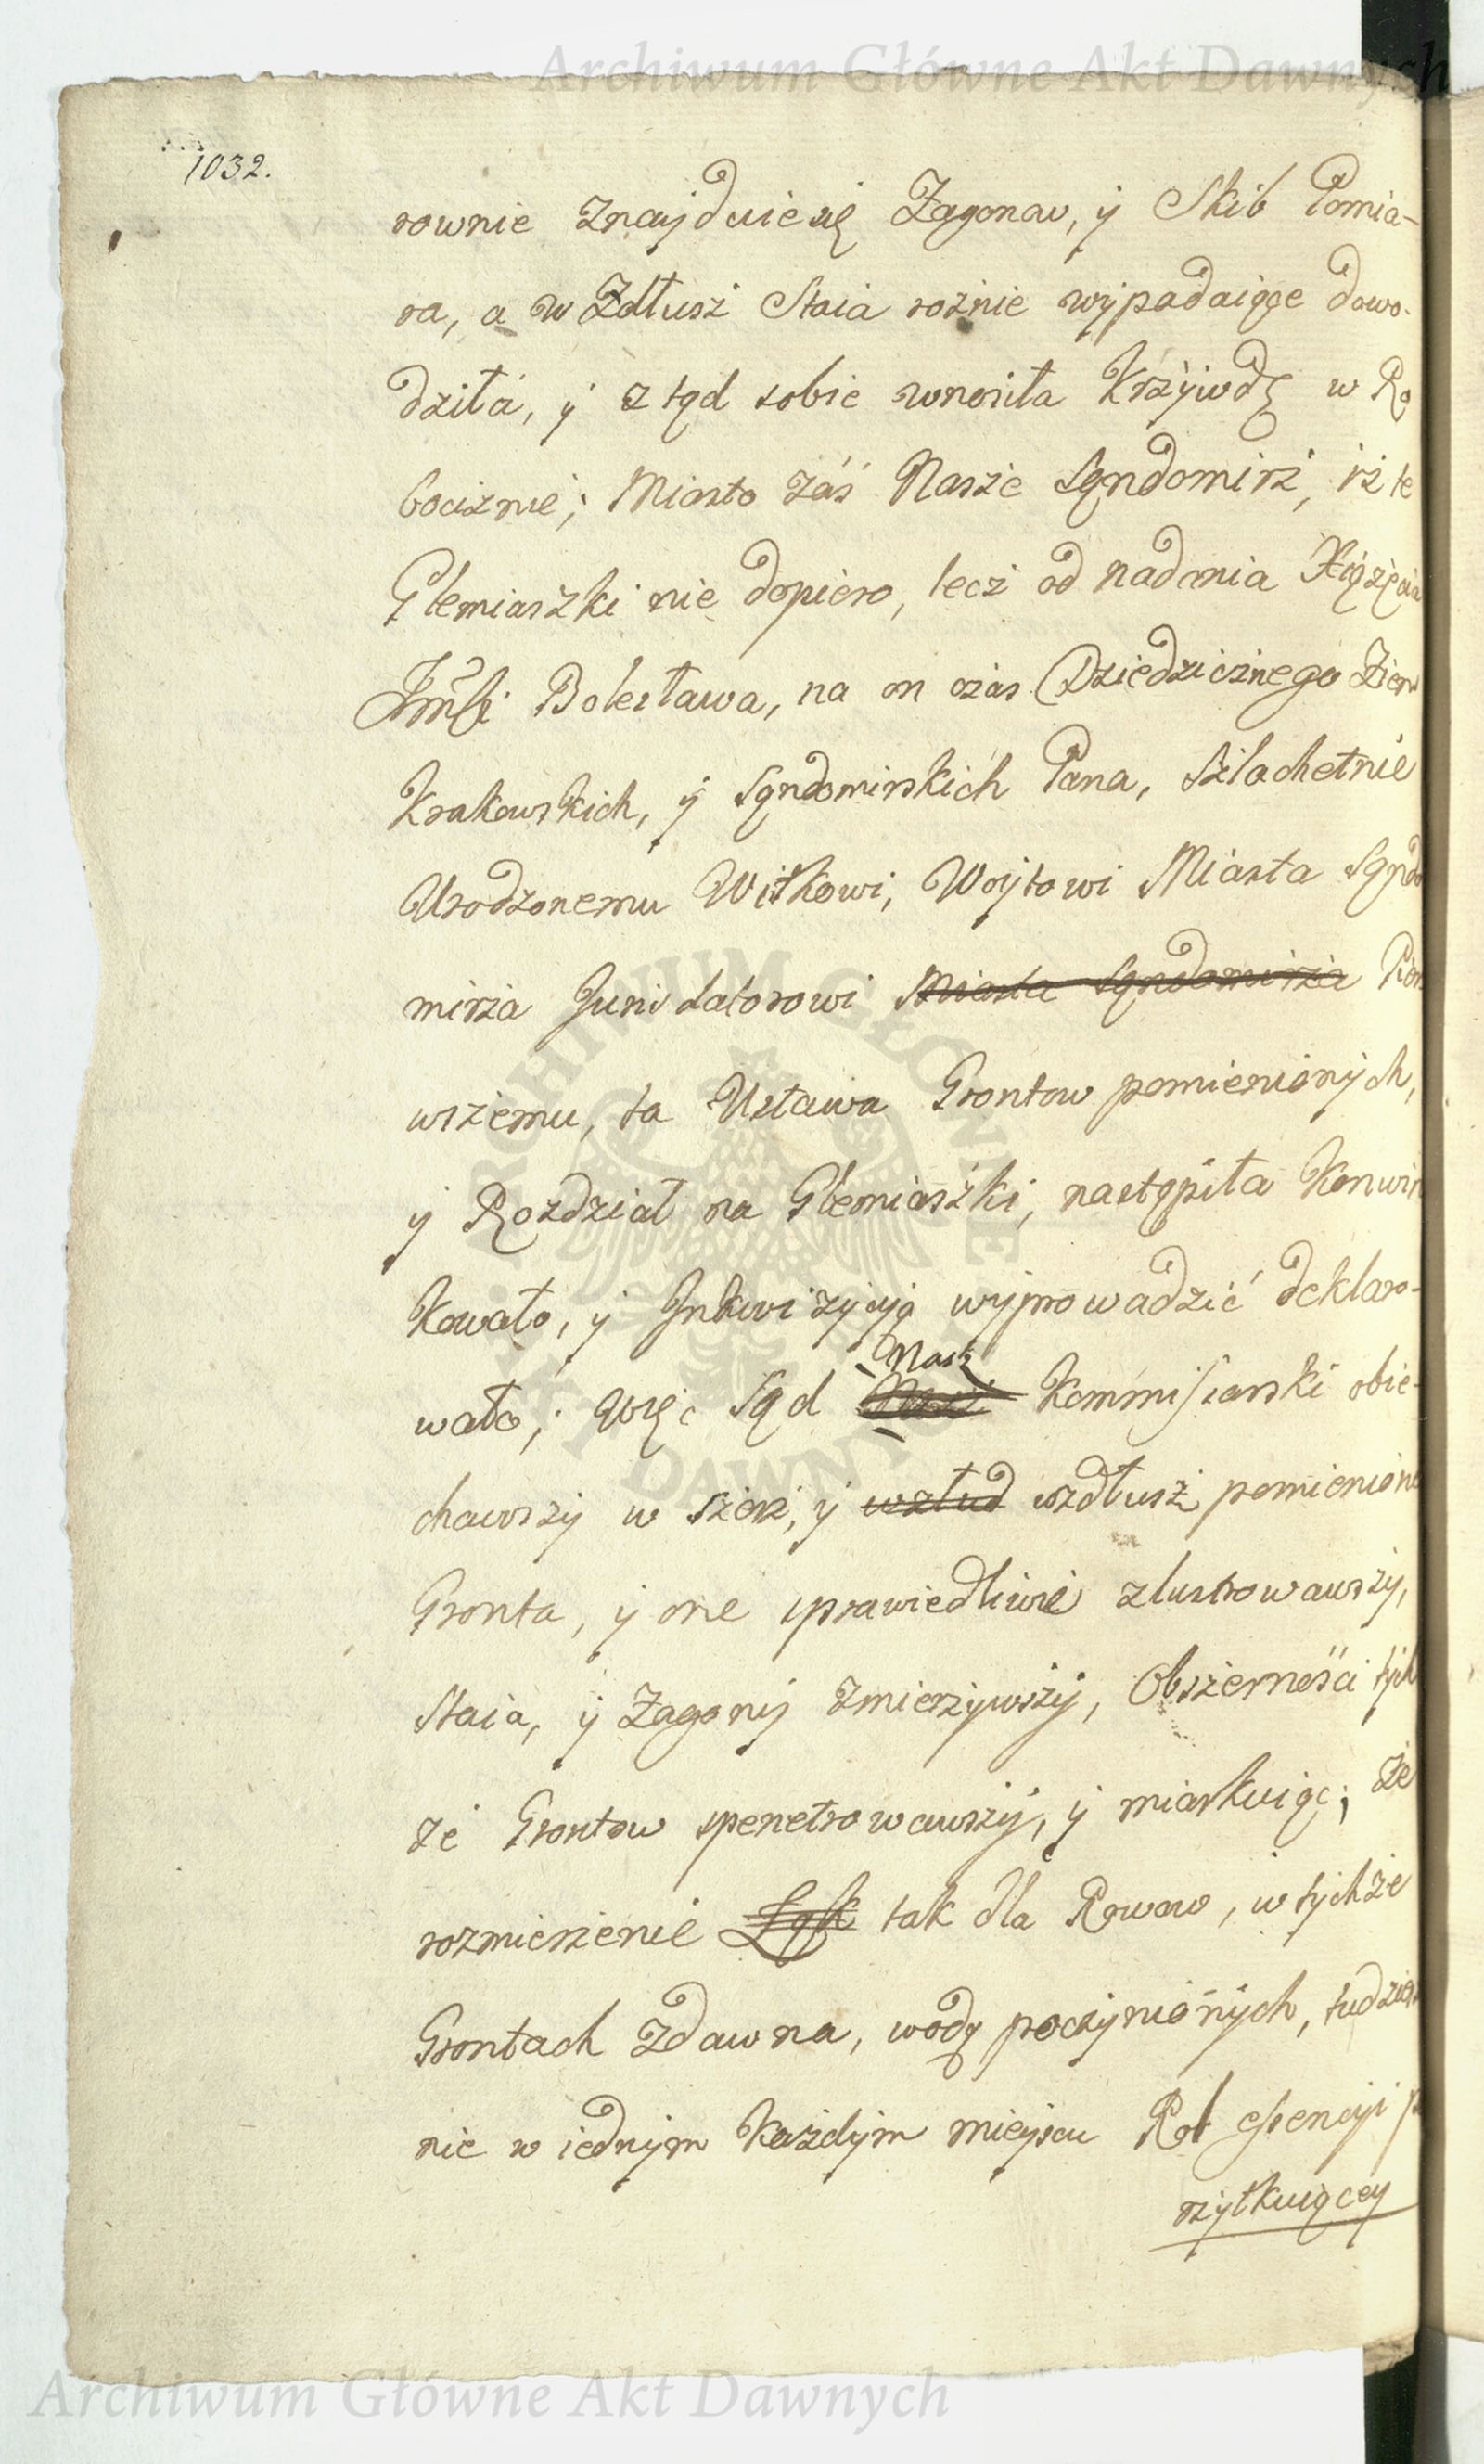 Archiwum Główne Akt Dawnych
1032.
rownie znayduie się Zagonow, y Skib Pomia-
ra, a w Zdłusż Staia rożnie wypadaiące dowo-
dziła, y ztąd sobie wnosiła Krzywdę w Ro
bociznie; Miasto zaś Nasze Sąndomirz, iż te
Glemiaszki nie dopiero, lecz od nadania Xiążęcia
Jmści Bolesława, na on czas Dziedzicznego Ziem
Krakowskich, y Sąndomirskich Pana, Szlachetnie
Urodzonemu Witkowi, Woytowi Miasta Sąndo
mirza Jurisdatorowi Miasta Sąndomirza Pier
wszemu, ta Ustawa Grontow pomienionych,
y Rozdział na Glemiaszki, nastąpiła Konwin
kowało, y Inkwizycyją wyprowadzić deklaro-
wało; więc Sąd Nasz Kommissarski obie-
chawszy w szerz, y wzłud wzdłusż pomienione
Gronta, y one sprawiedliwie zlustrowawszy,
Staia, y Zagony zmierzywszy, Obszerności tych
że Grontow spenetrowawszy, y miarkuiąc; że
rozmierzenie Łąk tak dla Rowow, w tychże
Grontach zdawna, wodą poczynionych, tudziesz
nie w iednym każdym mieyscu Rol essencyi p
rzytkuiącey
ARCHIWUM GŁÓWNE AKT DAWNYCH
Archiwum Główne Akt Dawnych